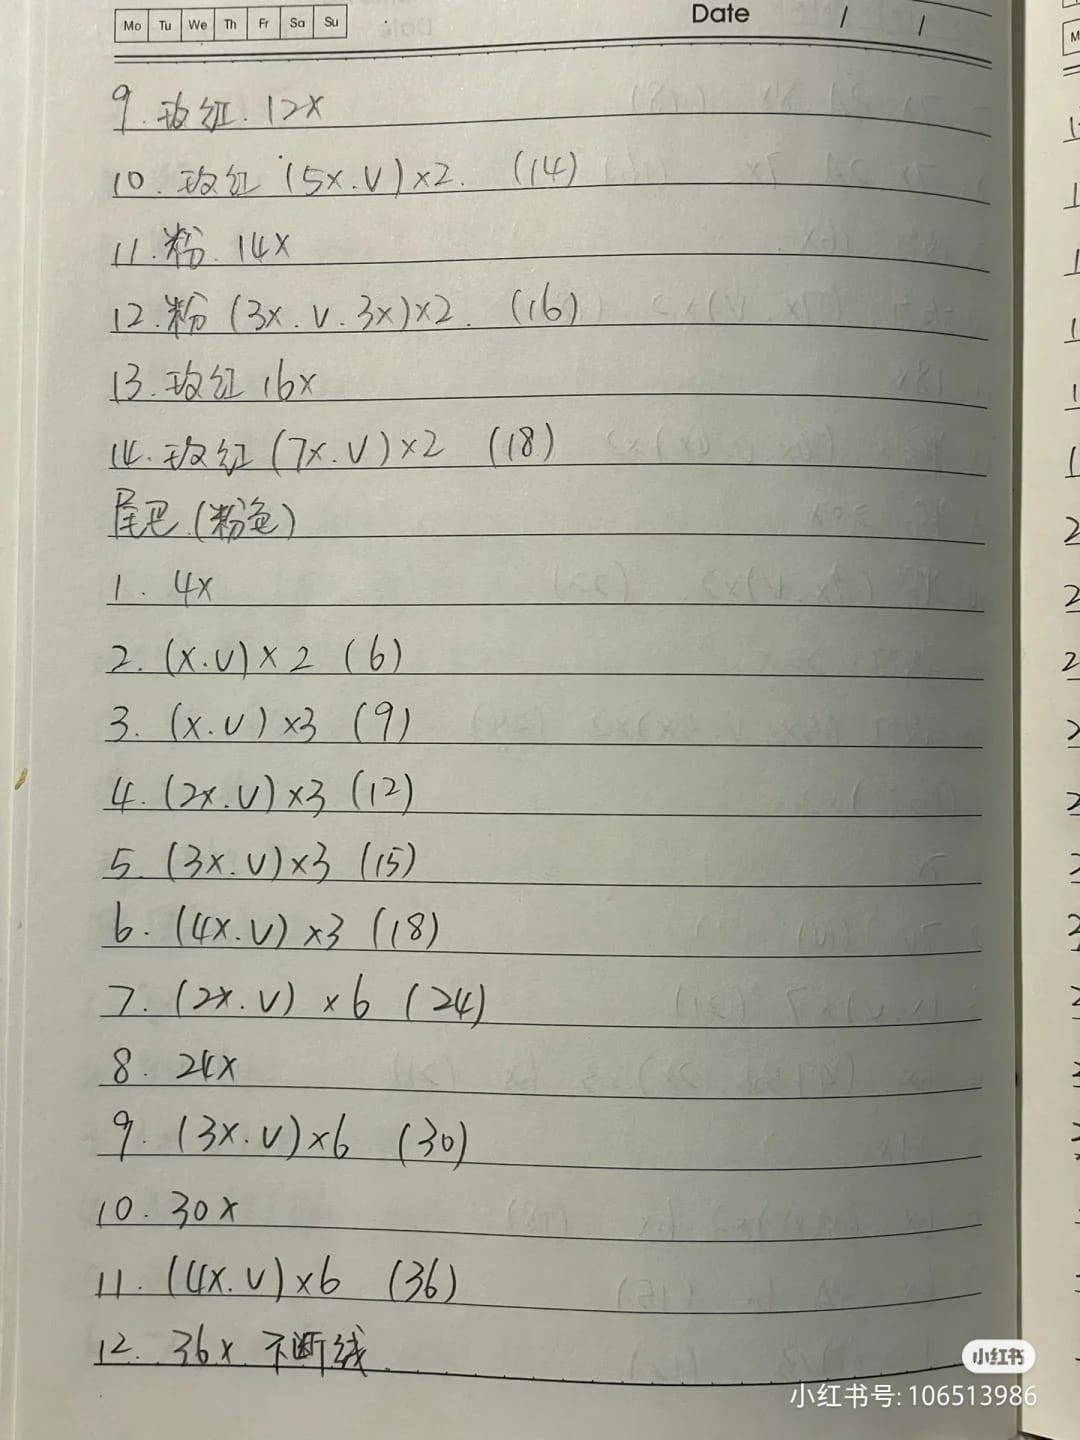 Mo Tu We Th Fr Sa Su
Date / /
9. 玫红. 12x
10. 玫红 (5x.V)×2. (14)
11. 粉. 14x
12. 粉 (3x.V.3x)×2. (16)
13. 玫红 16x
14. 玫红 (7x.V)×2 (18)
尾巴 (粉色)
1. 4x
2. (x.V)×2 (6)
3. (x.V)×3 (9)
4. (2x.V)×3 (12)
5. (3x.V)×3 (15)
6. (4x.V)×3 (18)
7. (2x.V)×6 (24)
8. 24x
9. (3x.V)×6 (30)
10. 30x
11. (4x.V)×6 (36)
12. 36x 不断线.
小红书
小红书号: 106513986